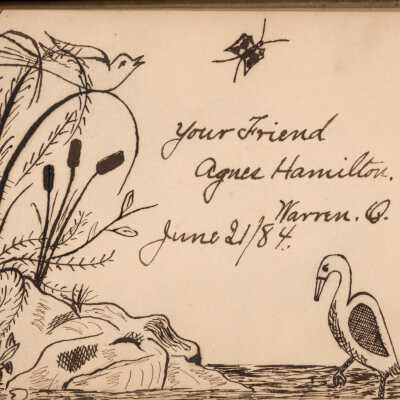 Your Friend
Agnes Hamilton.
Warren. O.
June 21/84.